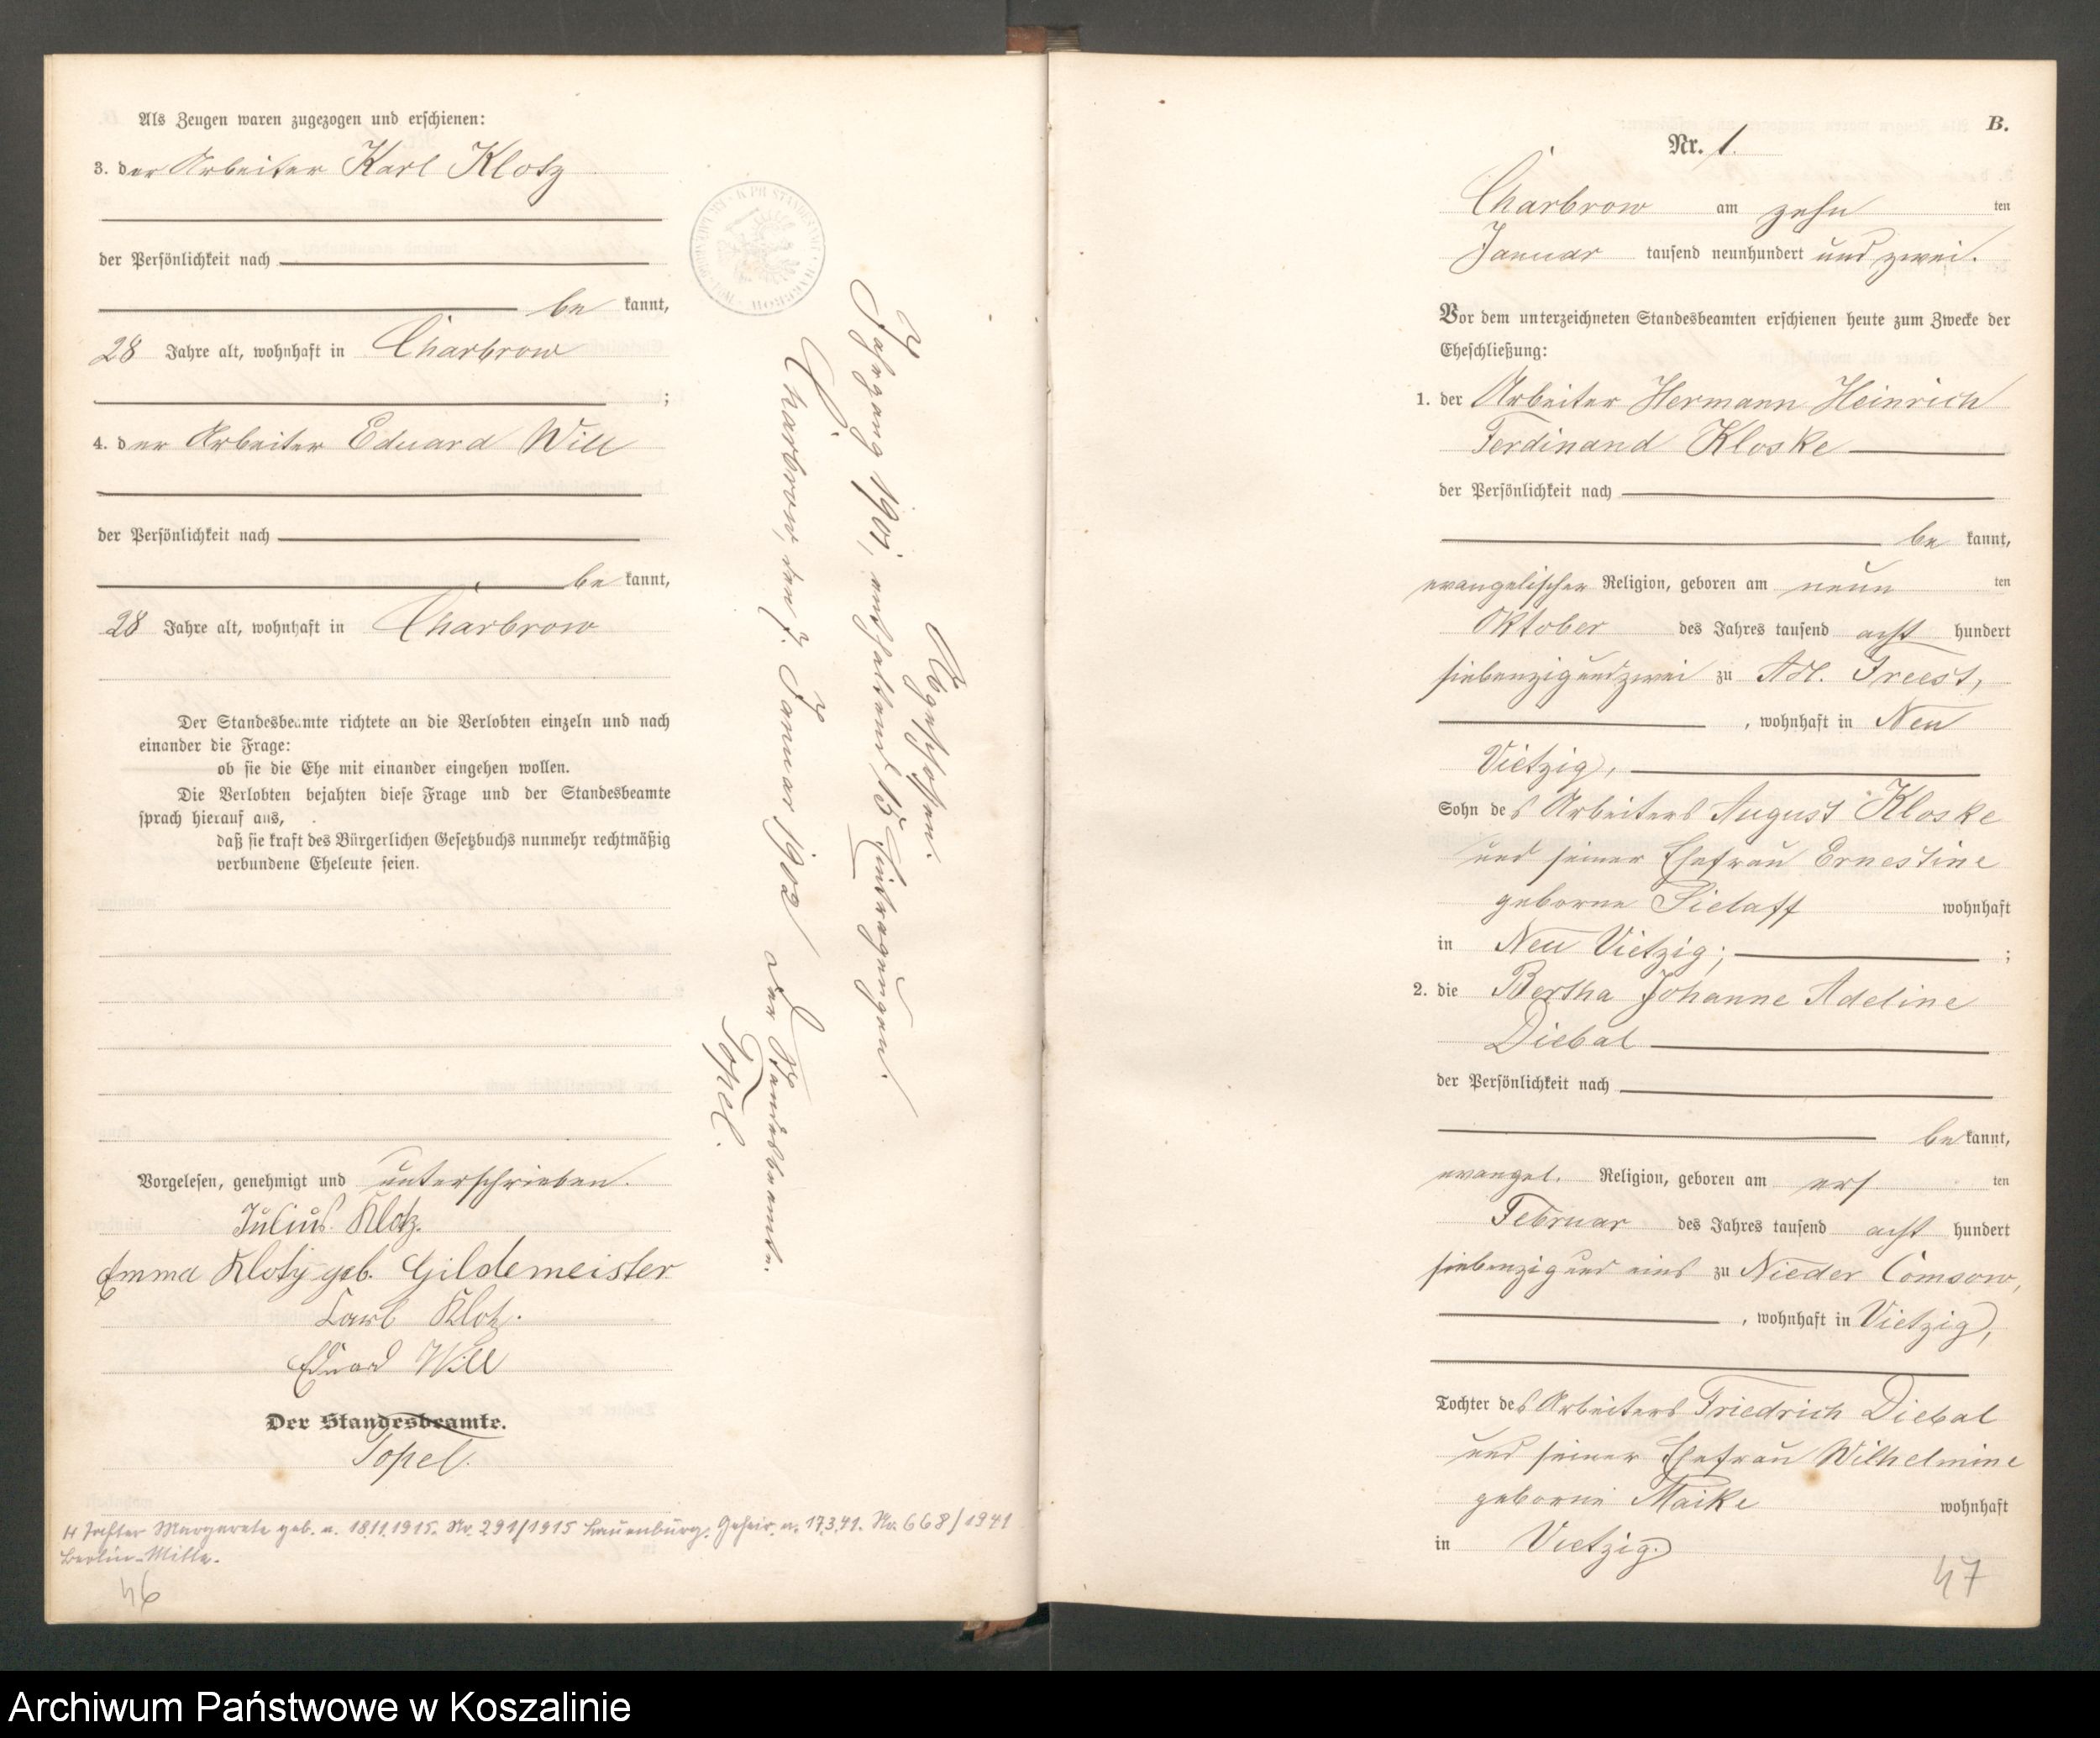 Als Zeugen waren zugezogen und erschienen:
3. der Arbeiter Karl Klotz
der Persönlichkeit nach
be kannt,
28 Jahre alt, wohnhaft in Charbrow
;
4. der Arbeiter Eduard Will
der Persönlichkeit nach
be kannt,
28 Jahre alt, wohnhaft in Charbrow
Der Standesbeamte richtete an die Verlobten einzeln und nach
einander die Frage:
ob sie die Ehe mit einander eingehen wollen.
Die Verlobten bejahten diese Frage und der Standesbeamte
sprach hierauf aus,
daß sie kraft des Bürgerlichen Gesetzbuchs nunmehr rechtmäßig
verbundene Eheleute seien.
Vorgelesen, genehmigt und unterschrieben.
Julius Klotz.
Emma Klotz geb. Gildemeister
Karl Klotz.
Eduard Will
Der Standesbeamte.
Topel.
H Tochter Margarete geb. a. 18.11.1915. Nr. 291/1915 Lauenburg. Geheir. a. 17.3.41. No. 668/1941
Berlin-Mitte.
46
Abgeschlossen.
Jahrgang 1901, enthaltend 15 Eintragungen.
Charbrow, den 7. Januar 1902
Der Standesbeamte.
Topel.
B.
Nr. 1.
Charbrow am zehn ten
Januar tausend neunhundert und zwei.
Vor dem unterzeichneten Standesbeamten erschienen heute zum Zwecke der
Eheschließung:
1. der Arbeiter Hermann Heinrich
Ferdinand Kloske
der Persönlichkeit nach
be kannt,
evangelischer Religion, geboren am neun ten
Oktober des Jahres tausend acht hundert
siebenzig und zwei zu Adl. Freest,
, wohnhaft in Neu
Vietzig,
Sohn des Arbeiters August Kloske
und seiner Ehefrau Ernestine
geborne Sielaff wohnhaft
in Neu Vietzig; ;
2. die Bertha Johanne Adeline
Diebal
der Persönlichkeit nach
be kannt,
evangel. Religion, geboren am ers ten
Februar des Jahres tausend acht hundert
siebenzig und eins zu Nieder Comsow,
, wohnhaft in Vietzig,
Tochter des Arbeiters Friedrich Diebal
und seiner Ehefrau Wilhelmine
geborne Maike wohnhaft
in Vietzig.
47
Archiwum Państwowe w Koszalinie